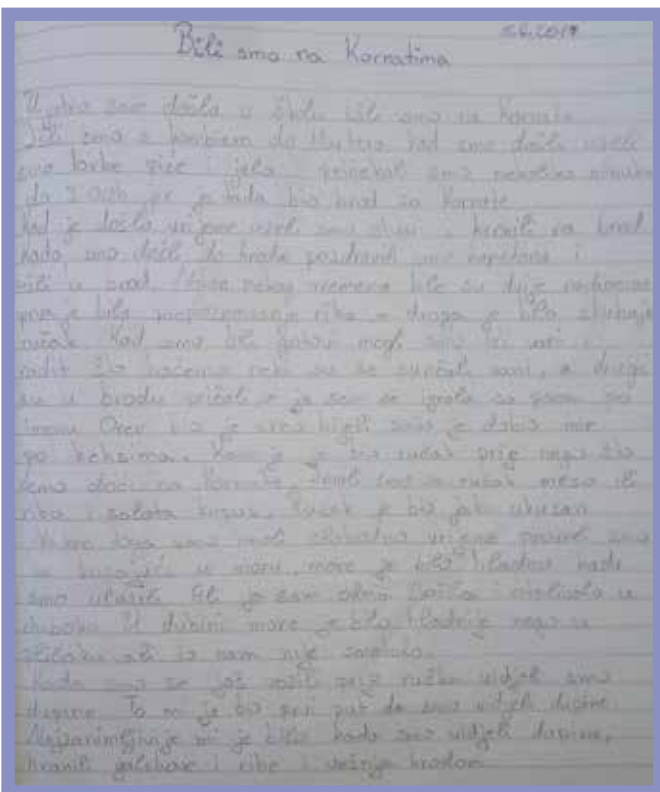 5.6.2017
Bili smo na Kornatima
smo došla u školu išli smo na Kornate
Išli smo s kombiem do kad smo došli uzeli
smo torbe pice i jela i smo nekoliko minuta
do jer je tada bio brod za Kornate
Kad je došlo vrijeme uzeli smo stvari i krenili na brod
kada smo došli do broda pozdravili smo kapetana i
ušli u brod. Nakon nekog vremena bile su dvije radionice
prva je bila prepoznavanje riba a druga je bila
Kad smo bili gotovi mogli smo ići van i
radit što hoćemo neki su se sunčali vani, a drugi
su u brodu pričali a ja sam se igrala sa psom po
imenu bio je crno bijeli
po keksima. je bio ručak prije nego što
ćemo doći na Kornate. Imali smo za ručak meso ili
riba i salata kupus. Ručak je bio jak ukusan
Nakon toga smo imali slobodno vrijeme
u moru, more je bilo hladno kada
smo ulazili. Ali ja sam odma i otplivala u
duboko. U dubini more je bilo hladnije nego u
plićaku ali to nam nije smetalo.
Kada smo se još vozili prije ručka vidjeli smo
dupine. To mi je bio prvi put da smo vidjeli dupine.
Najzanimljivije mi je bilo kada smo vidjeli dupine,
hranili galebove i ribe i vožnja brodom